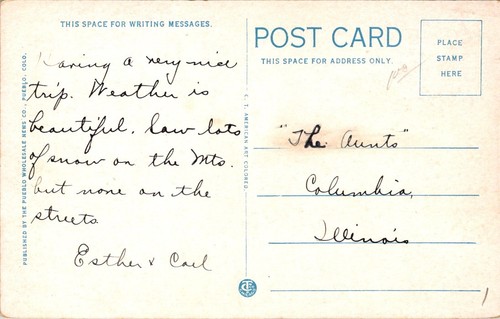 THIS SPACE FOR WRITING MESSAGES.
Having a very nice
trip. Weather is
beautiful. Saw lots
of snow on the Mts.
but none on the
streets
Esther & Carl
PUBLISHED BY THE PUEBLO WHOLESALE NEWS CO., PUEBLO, COLO.
C. T. AMERICAN ART COLORED
POST CARD
THIS SPACE FOR ADDRESS ONLY.
PLACE
STAMP
HERE
"The Aunts"
Columbia,
Illinois